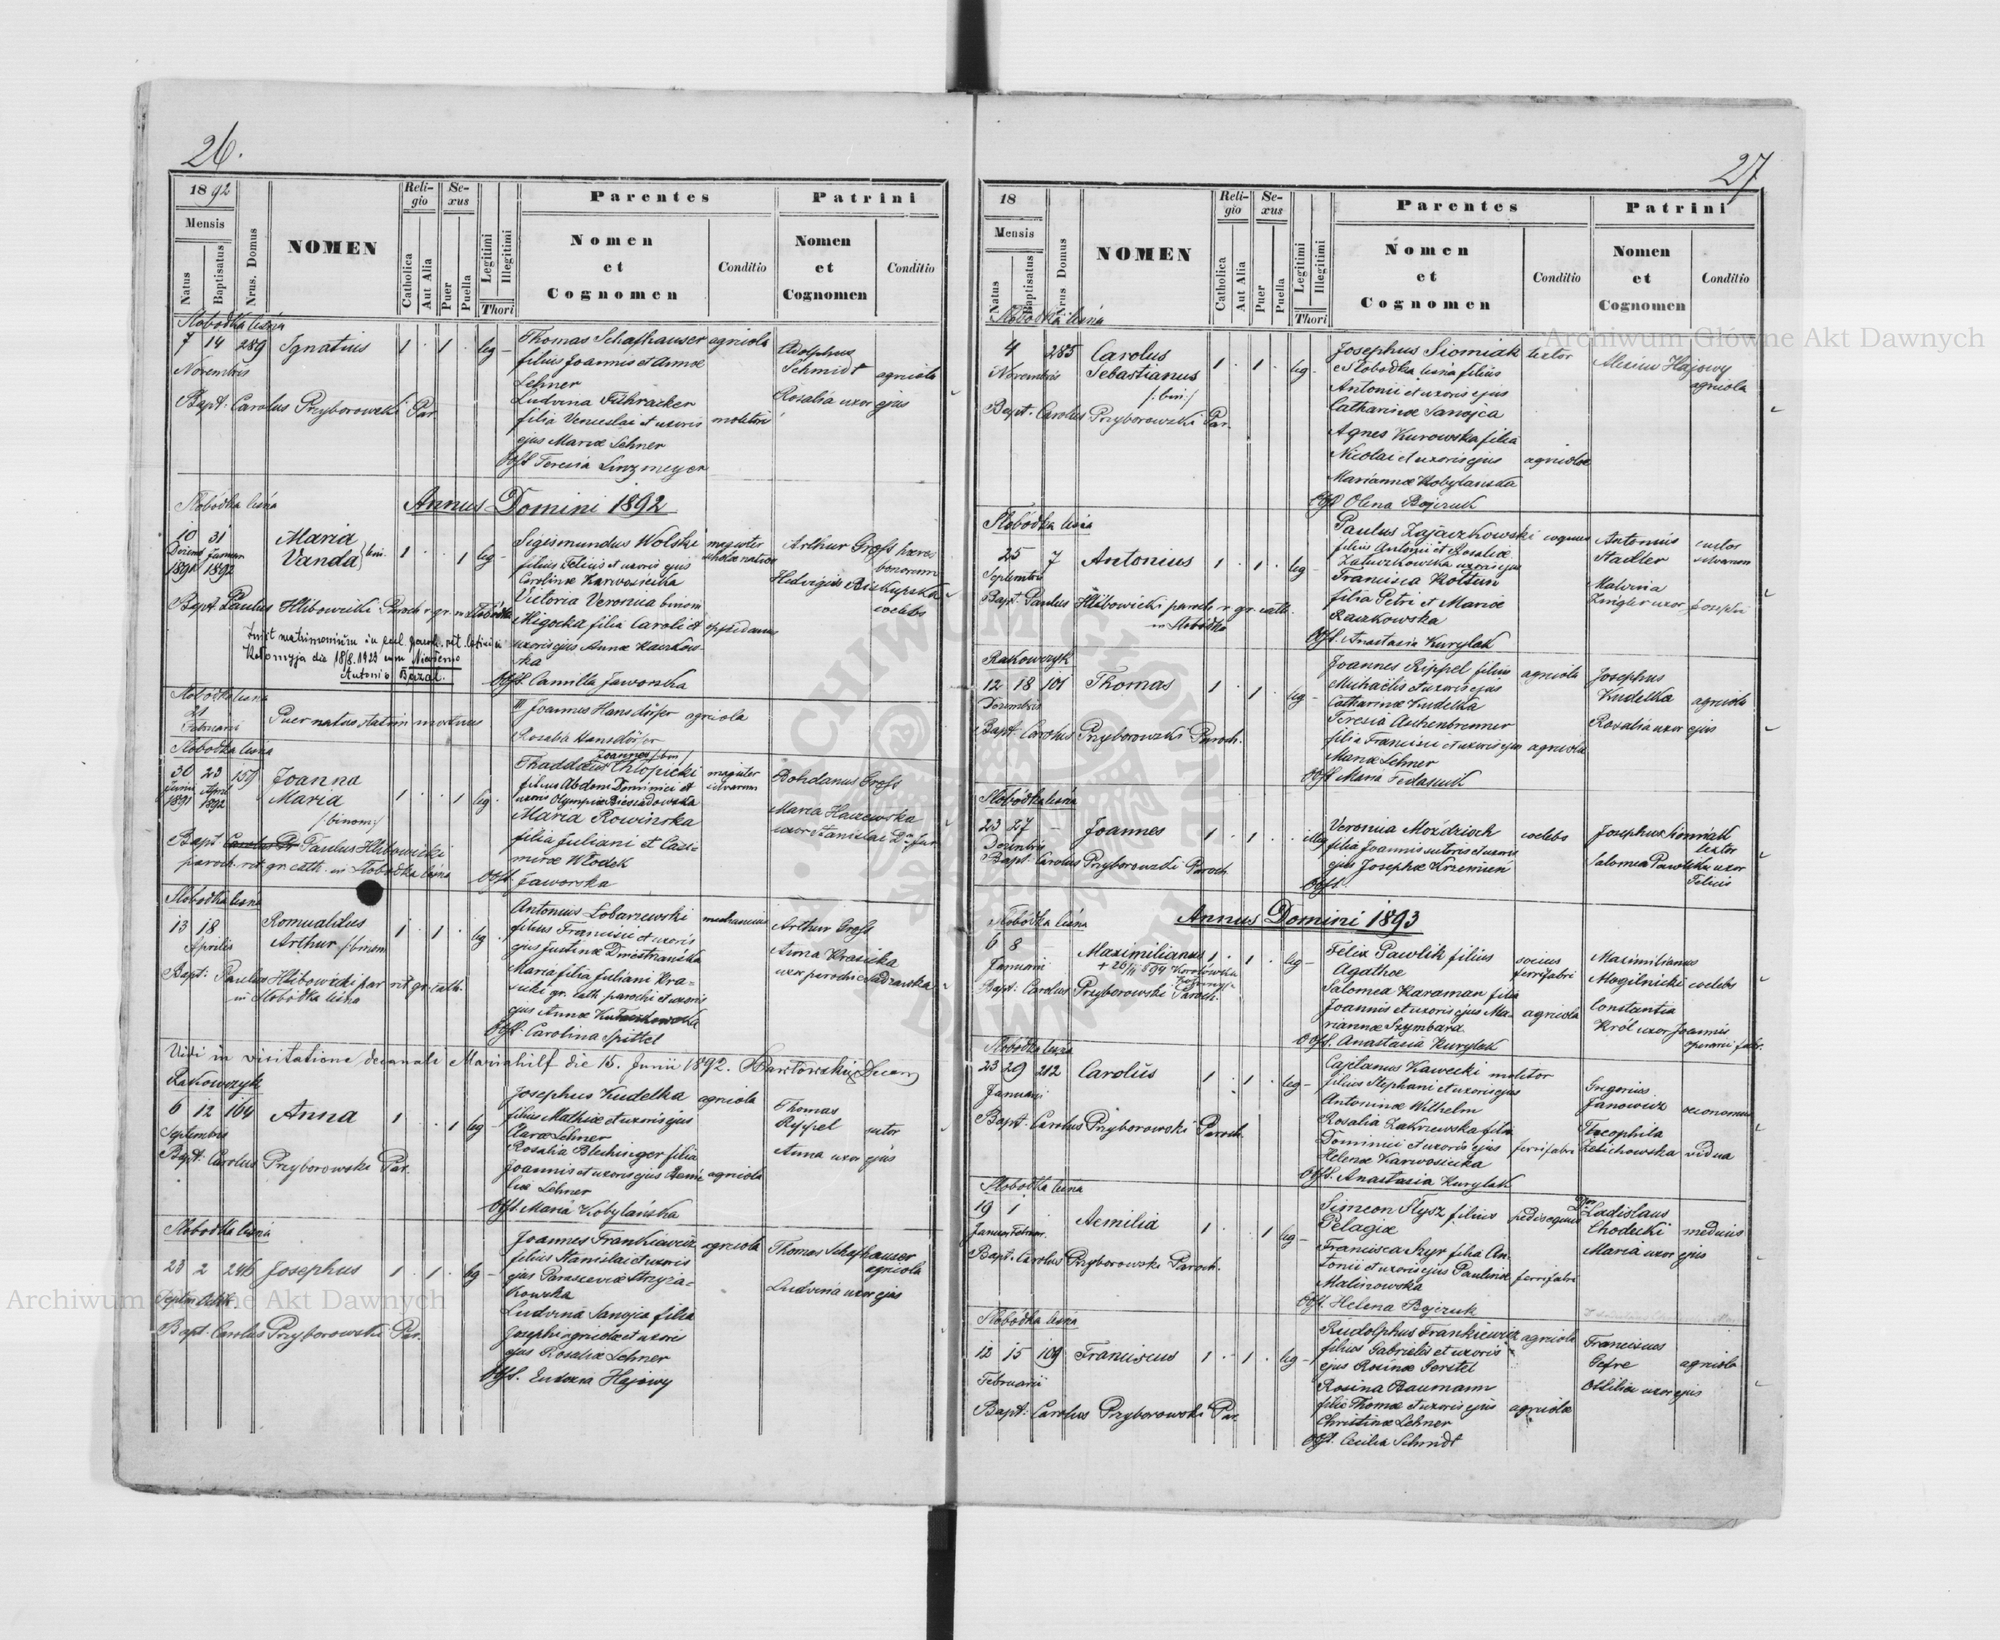 26.
1892
Mensis
Natus
Baptisatus
Nrus. Domus
NOMEN
Reli-
gio
Catholica
Aut Alia
Se-
xus
Puer
Puella
Legitimi
Illegitimi
Thori
Parentes
Nomen
et
Cognomen
Conditio
Patrini
Nomen
et
Cognomen
Conditio
Slobodka leśna
7 14 289 Ignatius 1 · 1 · leg - Thomas Schafhauser agricola Adolphus
Novembris filius Joannis et Annæ Schmidt agricola
Lehner
Bapt. Carolus Przyborowski Par. Ludvina Führacker Rosalia uxor ejus
filia Venceslai et uxoris molitori
ejus Mariæ Lehner
Obst. Teresia Linzmeyer
Annus Domini 1892
Slobódka leśna
10 31 Maria 1 · · 1 leg - Sigismundus Wolski magister Arthur Gross hæres
1892 Vanda bin. filius Felicis et uxoris ejus bonorum
Carolinæ Karwosiecka Hedvigis
Victoria Veronica binom coelebs
Bapt. Paulus Hlibowicki Paroch r. gr. in Slobódka Migocka filia Caroli et oppidanus
uxoris ejus Annæ
Iniit matrimonium in eccl. paroch. rit. latini in
Kołomyja die 18/8. 1923 cum
Antonio
Obst. Camilla Jaworska
Slobodka leśna
Februarii Puer natus statim mortuus Joannes Hansdörfer agricola
Rosalia Hansdörfer
Slobodka leśna
30 23 159 Joanna Thaddæus Chłopicki magister Bohdanus Gross
1891 1892 Maria 1 · · 1 leg. filius Abdom Dominici et silvarum
/binom/ uxoris Olympiæ Biesiadowska Maria
Maria Rowińska uxor Stanislai
Bapt. Paulus Hlibowicki filia Juliani et Casi-
paroch. rit. gr. cath. in Slobodka leśna miræ Włodek
Obst. Jaworska
Slobodka leśna
13 18 Romualdus 1 · 1 · leg Antonius Łobarzewski mechanicus Arthur Gross
Aprilis Arthur /:binom filius Francisci et uxoris
ejus Justinæ Dmistrzańska Anna Krasicka
Bapt: Paulus Hlibowicki par rit gr. cath. Maria filia Juliani Kra- uxor parochi
in Slobódka leśna sicki gr. cath. parochi et uxoris
ejus Annæ
Obst. Carolina Spittel
Vidi in visitatione decanali Mariahilf die 15. Junii 1892.
Rakowczyk
6 12 164 Anna 1 · · 1 leg Josephus Kudelka agricola Thomas
Septembris filius Mathiæ et uxoris ejus Rippel sutor
Claræ Lehner Anna uxor ejus
Bapt. Carolus Przyborowski Par. Rosalia Blechinger filia
Joannis et uxoris ejus agricola
Lehner
Obst. Maria Kobylańska
Slobodka leśna
23 2 246 Josephus 1 · 1 · leg - Joannes Frankiewicz agricola Thomas Schafhauser
filius Stanislai et uxoris agricola
ejus Parasceviæ Stryza- Ludvina uxor ejus
kowska
Bapt. Carolus Przyborowski Par. Ludvina Sanojca filia
Josephi agricolæ et uxoris
ejus Rosaliæ Lehner
Obst. Eudoxia Hajowy
27
18
Mensis
Natus
Baptisatus
Nrus Domus
NOMEN
Reli-
gio
Catholica
Aut Alia
Se-
xus
Puer
Puella
Legitimi
Illegitimi
Thori
Parentes
Nomen
et
Cognomen
Conditio
Patrini
Nomen
et
Cognomen
Conditio
Slobodka leśna
4 285 Carolus 1 · 1 · leg - Josephus Siomiak textor Hajowy
Novembris Sebastianus Slobodka leśna filius agricola
/:bin:/ Antonii et uxoris ejus
Bapt. Carolus Przyborowski Par. Catharinæ Sanojca
Agnes Kurowska filia
Nicolai et uxoris ejus agricolæ
Mariannæ Kobylańska
Obst Olena Bojczuk
Slobódka leśna
25 7 Antonius 1 · 1 · leg - Paulus Zajączkowski coquus Antonius custos
Septembris filius Antonii et Rosaliæ Stadler silvarum
Załuczkowska uxoris ejus
Bapt. Paulus Hlibowicki paroch r. gr. cath. Francisca Kołtun Malvina
in Slobodka filia Petri et Mariæ Zingler uxor Josephi
Raczkowska
Obst. Anastasia Kurylak
Rakowczyk
12 18 101 Thomas 1 · 1 · leg - Joannes Rippel filius agricola Josephus
Decembris Michaelis et uxoris ejus Kudelka agricola
Catharinæ Kudelka
Bapt. Carolus Przyborowski Paroch. Teresia Aschenbrenner Rosalia uxor ejus
filia Francisci et uxoris ejus agricola
Mariæ Lehner
Obst Maria Fedasiuk
Slobodka leśna
23 27 Joannes 1 · 1 · illeg Veronica Moździoch coelebs Josephus Siomiak
Decembris filia Joannis sutoris et uxoris textor
Bapt. Carolus Przyborowski Paroch ejus Josephæ Krzemien Salomea Pawlik uxor
Obst. Felicis
Annus Domini 1893
Slobódka leśna
6 8 Maximilianus 1 · 1 · leg - Felix Pawlik filius socius Maximilianus
Januarii Agathæ ferrifabri Mogilnicki coelebs
Bapt: Carolus Przyborowski Paroch. Salomea Karaman filia Constantia
Joannis et uxoris ejus Ma- agricola Król uxor Joannis
riannæ Szymbara operarii fabr.
Obst. Anastasia Kurylak
Slobodka leśna
23 29 212 Carolus 1 · 1 · leg - Cajetanus Kawecki molitor
Januarii filius Stephani et uxoris ejus Janowicz oeconomus
Antoninæ Wilhelm
Bapt. Carolus Przyborowski Paroch. Rosalia Zakrzewska filia Theophila
Dominici et uxoris ejus ferrifabri Zelichowska vidua
Helenæ Karwosiecka
Obst. Anastasia Kurylak
Slobodka leśna
19 1 Aemilia 1 · · 1 leg - Simeon Stysz filius pedisequus Ladislaus
Pelagiæ Chodecki medicus
Bapt. Carolus Przyborowski Paroch. Francisca Szyr filia An- Maria uxor ejus
tonii et uxoris ejus Paulinæ ferrifabri
Malinowska
Obst. Helena Bojczuk
Slobodka leśna
12 15 109 Franciscus 1 · 1 · leg - Rudolphus Frankiewicz agricola Franciscus
Februarii filius Gabrielis et uxoris Gefre agricola
ejus Rosinæ Gerstel
Bapt: Carolus Przyborowski Par. Rosina Baumann Ottilia uxor ejus
filia Thomæ et uxoris ejus agricolæ
Christinæ Lehner
Obst. Cecilia Schmidt
Archiwum Główne Akt Dawnych
Archiwum Główne Akt Dawnych